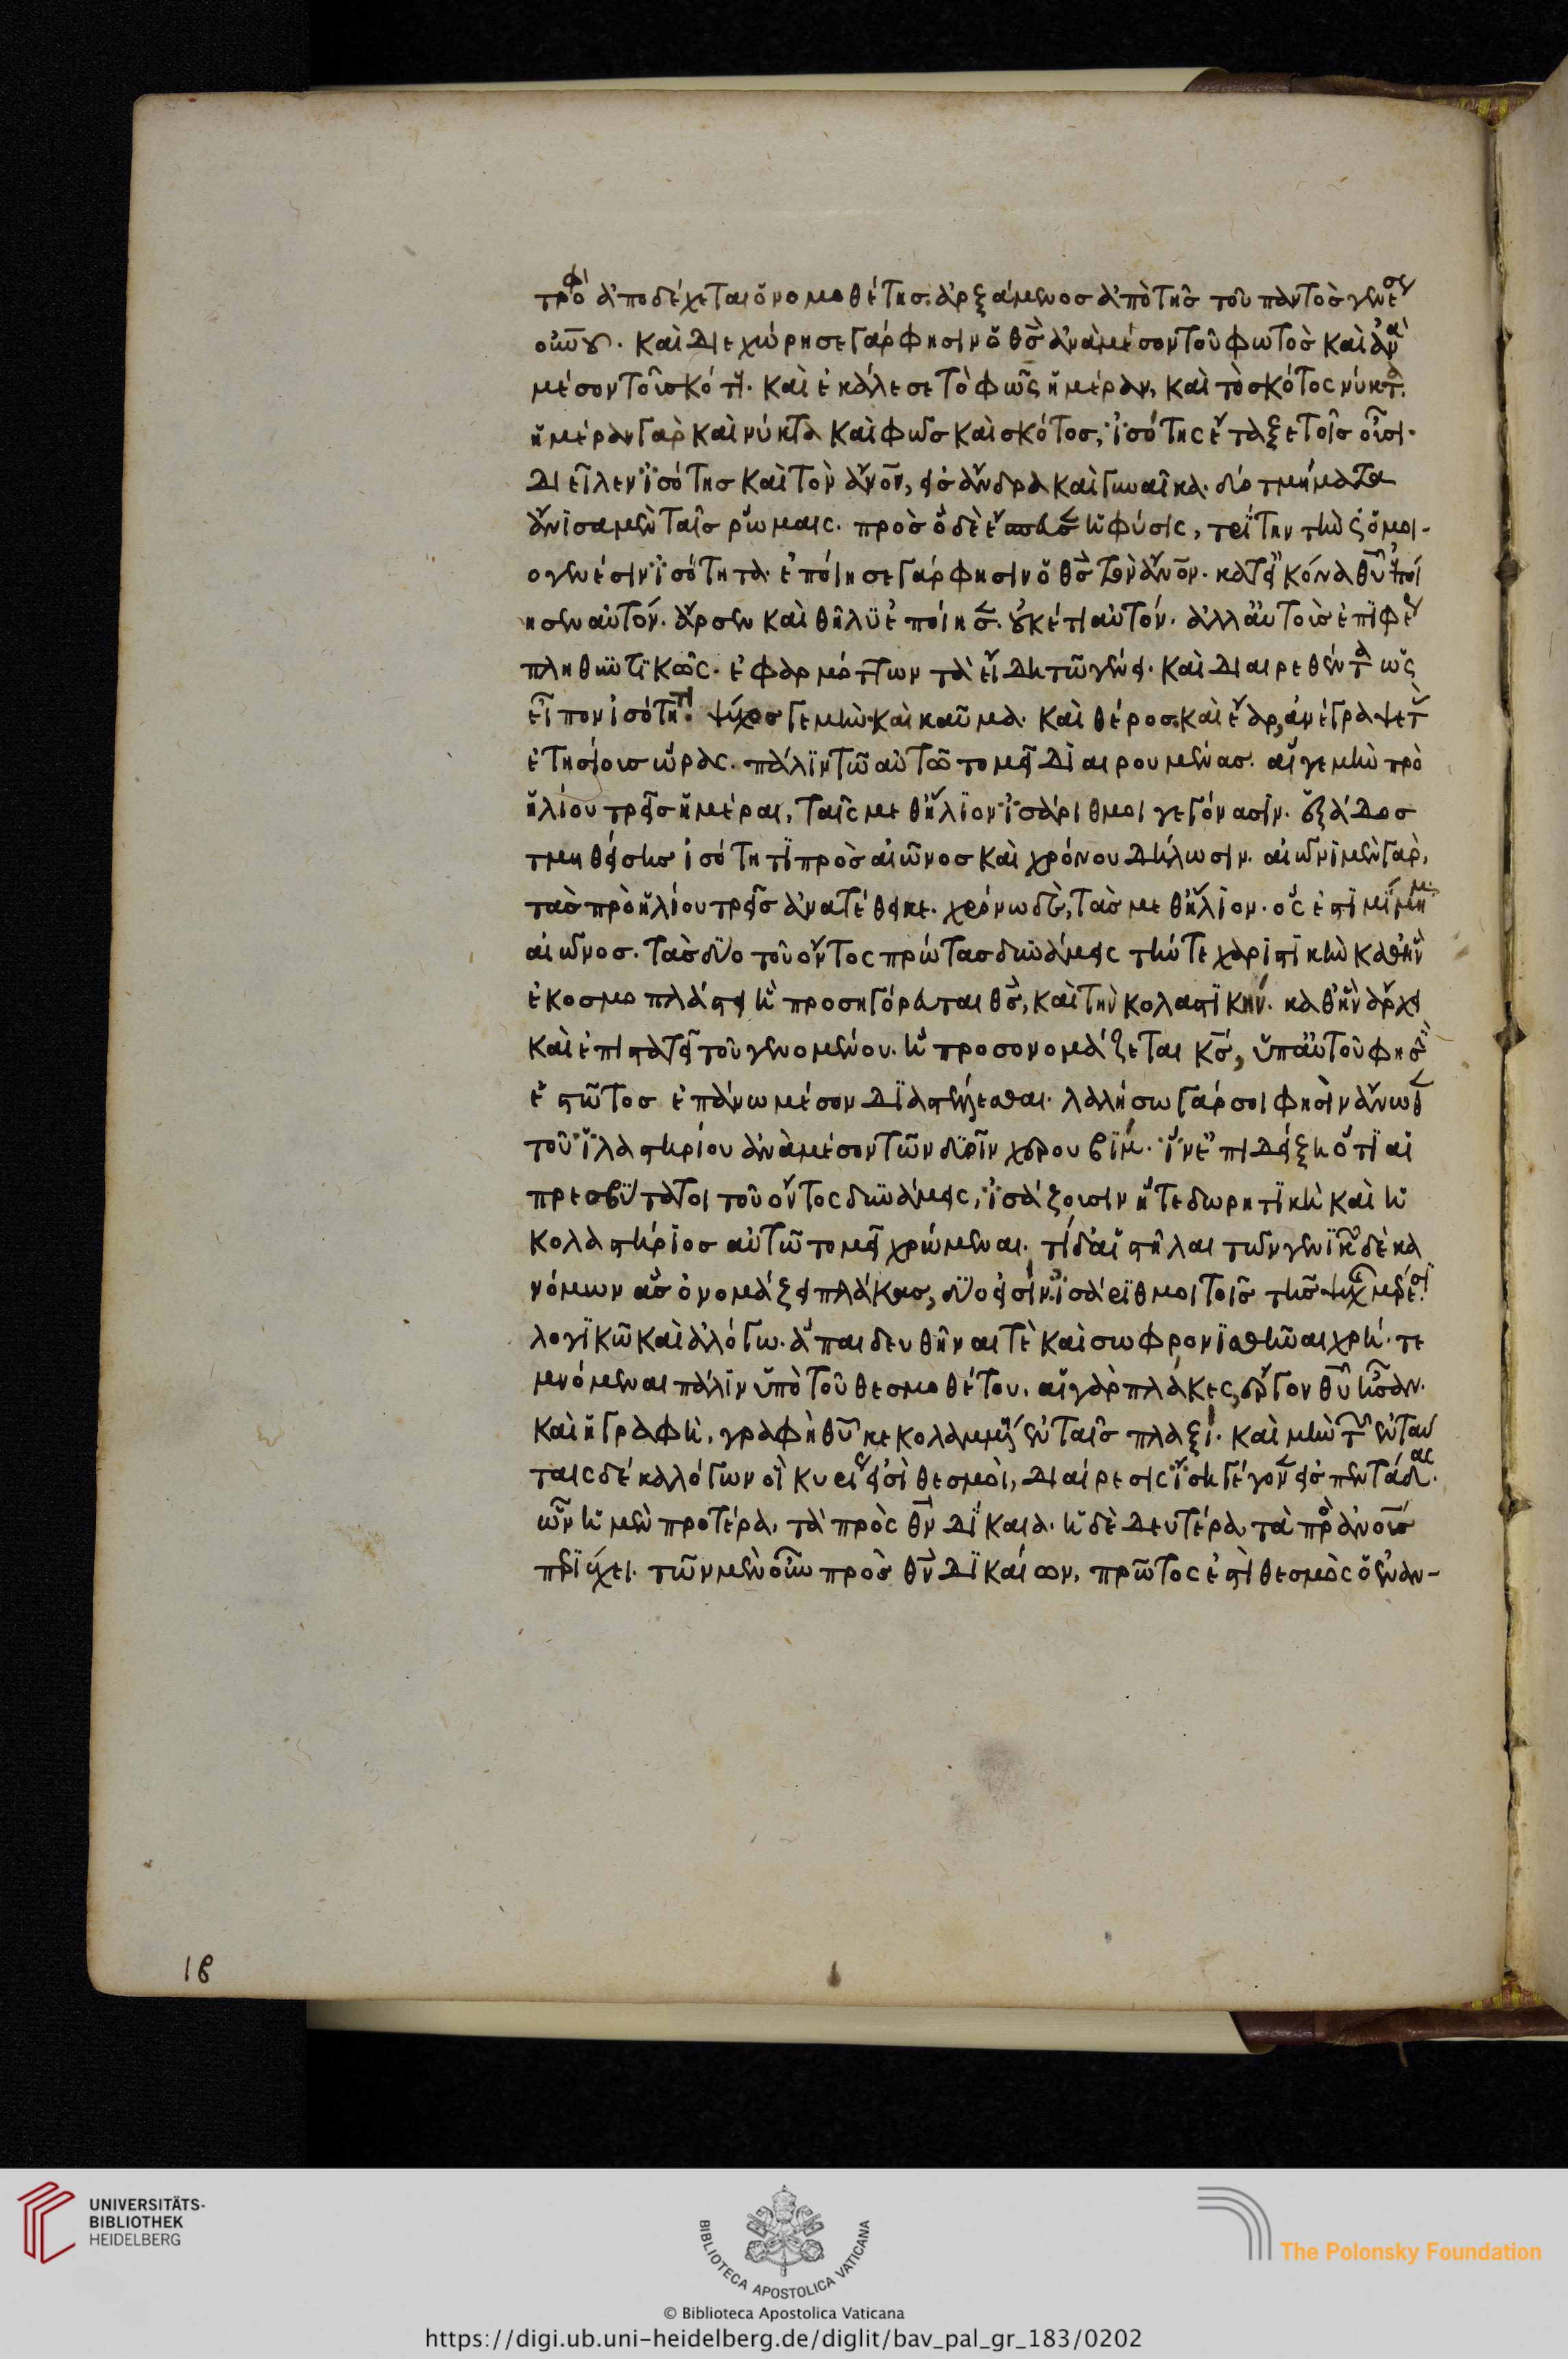 τροφὸ ἀποδέχεται ὁ νομοθέτης. ἀρξάμενος ἀπὸ τῆς τοῦ παντὸς γενέσε
οὐνου. καὶ διεχώρησε γάρ φησιν ὁ θς̅ ἀναμέσον τοῦ φωτὸς καὶ ἀνὰ
μέσον τοῦ σκότους. καὶ ἐκάλεσε τὸ φῶς ἡμέραν, καὶ τὸ σκότος νύκτα.
ἡμέραν γὰρ καὶ νύκτα καὶ φῶς καὶ σκότος, ἰσότης ἔταξε τοῖς οὖσι.
διεῖλεν ἰσότης καὶ τὸν ἄνον̅, εἰς ἄνδρα καὶ γυναῖκα. δύο τμήματα
ἄνισα μὲν ταῖς ῥώμαις. πρὸς ὃ δὲ ἔσπευσεν ἡ φύσις, τρίτην τινὸς ὁμοι-
ογενέσιν ἰσότητα. ἐποίησε γάρ φησιν ὁ θς̅ τὸν ἄνον̅. κατ' εἰκόνα θυ̅ ἐποί
ησεν αὐτόν. ἄρσεν καὶ θῆλυ ἐποίησεν. οὐκέτι αὐτόν. ἀλλ' αὐτοὺς ἐπιφέρει
πληθυντικῶς. ἐφαρμόττων τὰ εἴδη τῶ γένει. καὶ διαιρεθέντα ὡς
εἶπον ἰσότητι. ψύχος γε μὴν καὶ καῦμα. καὶ θέρος καὶ ἔαρ, ἀνέγραψε τὰς
ἐτησίους ὥρας. πάλιν τῶ αὐτῶ τομεῖ διαιρουμένας. αἵ γε μὴν πρὸ
ἡλίου τρεῖς ἡμέραι, ταῖς μεθ' ἥλιον ἰσάριθμοι γεγόνασιν. ἑξάδος
τμηθείσης ἰσότητι πρὸς αἰῶνος καὶ χρόνου δήλωσιν. αἰῶνι μὲν γὰρ,
τὰς πρὸ ἡλίου τρεῖς ἀνατέθεικε. χρόνω δὲ, τὰς μεθ' ἥλιον. ὅς ἐστι μίμημα
αἰῶνος. τὰς δύο τοῦ ὄντος πρώτας δυνάμεις τήν τε χαριστικὴν καθ' ἣν
ἐκοσμοπλάστει ἣ προσηγόρευται θς̅, καὶ τὴν κολαστικήν. καθ' ἣν ἄρχει
καὶ ἐπιστατεῖ τοῦ γενομένου. ἣ προσονομάζεται κς̅, ὑπ' αὐτοῦ φησιν
ἑστῶτος ἐπάνω μέσον διαστέλλεσθαι. λαλήσω γάρ σοι φησὶν ἄνωθεν
τοῦ ἱλαστηρίου ἀναμέσον τῶν δυεῖν χερουβίμ. ἵν' ἐπιδείξη ὅτι αἱ
πρεσβύτατοι τοῦ ὄντος δυνάμεις, ἰσάζουσιν ἥ τε δωρητικὴ καὶ ἡ
κολαστήριος αὐτῶ τομεῖ χρώμεναι. τί δ' αἱ στῆλαι τῶν γενικῶν δέκα
νόμων ἃς ὀνομάζει πλάκας, δύο εἰσὶν ἰσάριθμοι τοῖς τῆς ψυχῆς μέρεσι
λογικῶ καὶ ἀλόγω. ἃ παιδευθῆναί τε καὶ σωφρονισθῆναι χρή. τε
μνόμεναι πάλιν ὑπὸ τοῦ θεσμοθέτου. αἱ γὰρ πλάκες, ἔργον θυ̅ ἦσαν.
καὶ ἡ γραφὴ, γραφὴ θυ̅ κεκολαμμένη ἐν ταῖς πλαξί. καὶ μὴν τῶν ἐν ταύ
ταις δέκα λόγων οἳ κυρίως εἰσὶ θεσμοὶ, διαίρεσις ἴση γέγονεν εἰς πεντάδας.
ὧν ἡ μὲν προτέρα, τὰ πρὸς θν̅ δίκαια. ἡ δὲ δευτέρα τὰ πρὸς ἀνους̅
περιέχει. τῶν μὲν οὖν πρὸς θν̅ δικαίων, πρῶτος ἐστὶ θεσμὸς ὁ ἐναν-
18
UNIVERSITÄTS-
BIBLIOTHEK
HEIDELBERG
BIBLIOTECA APOSTOLICA VATICANA
The Polonsky Foundation
© Biblioteca Apostolica Vaticana
https://digi.ub.uni-heidelberg.de/diglit/bav_pal_gr_183/0202